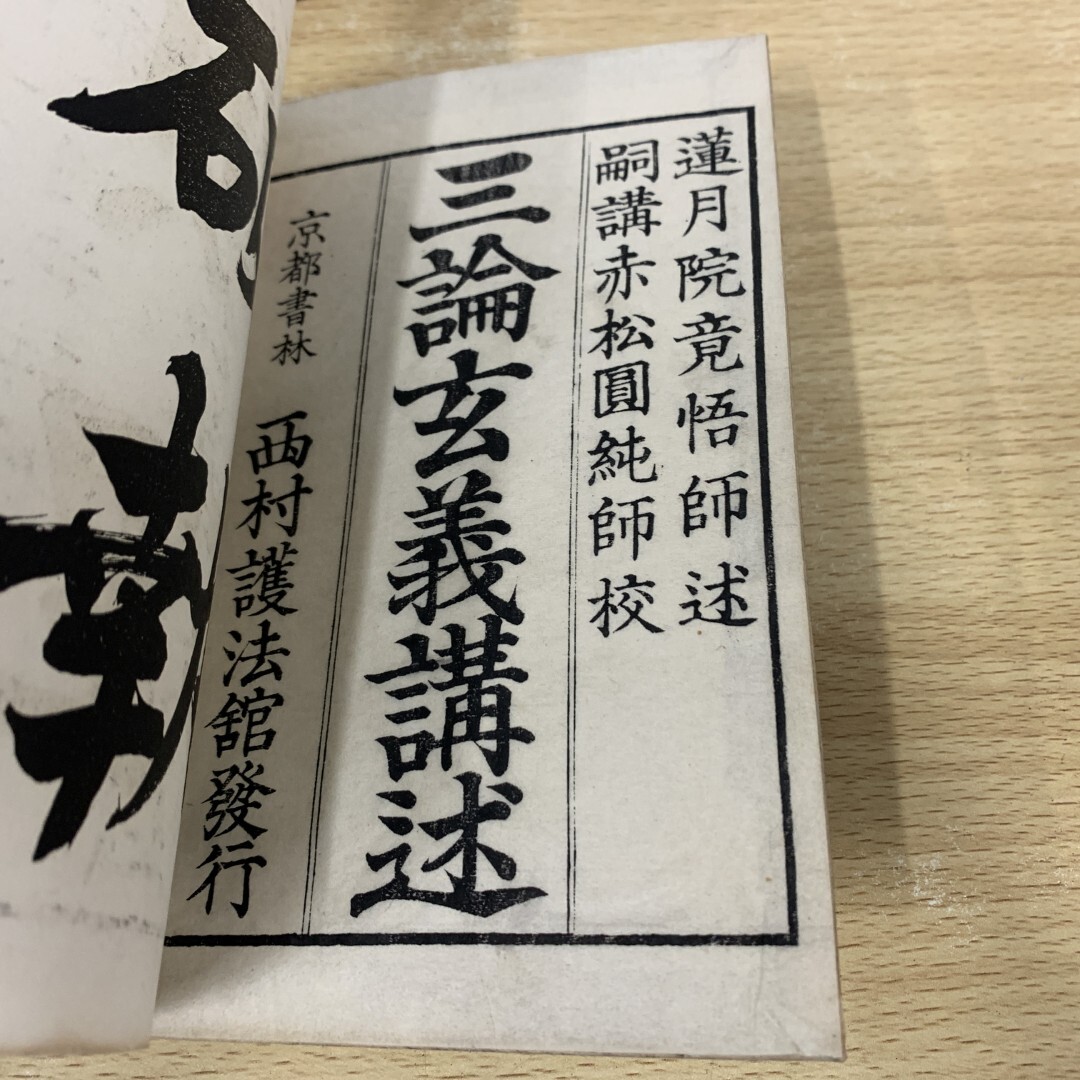 蓮月院竟悟師述
嗣講赤松圓純師校
三論玄義講述
京都書林 西村護法舘發行